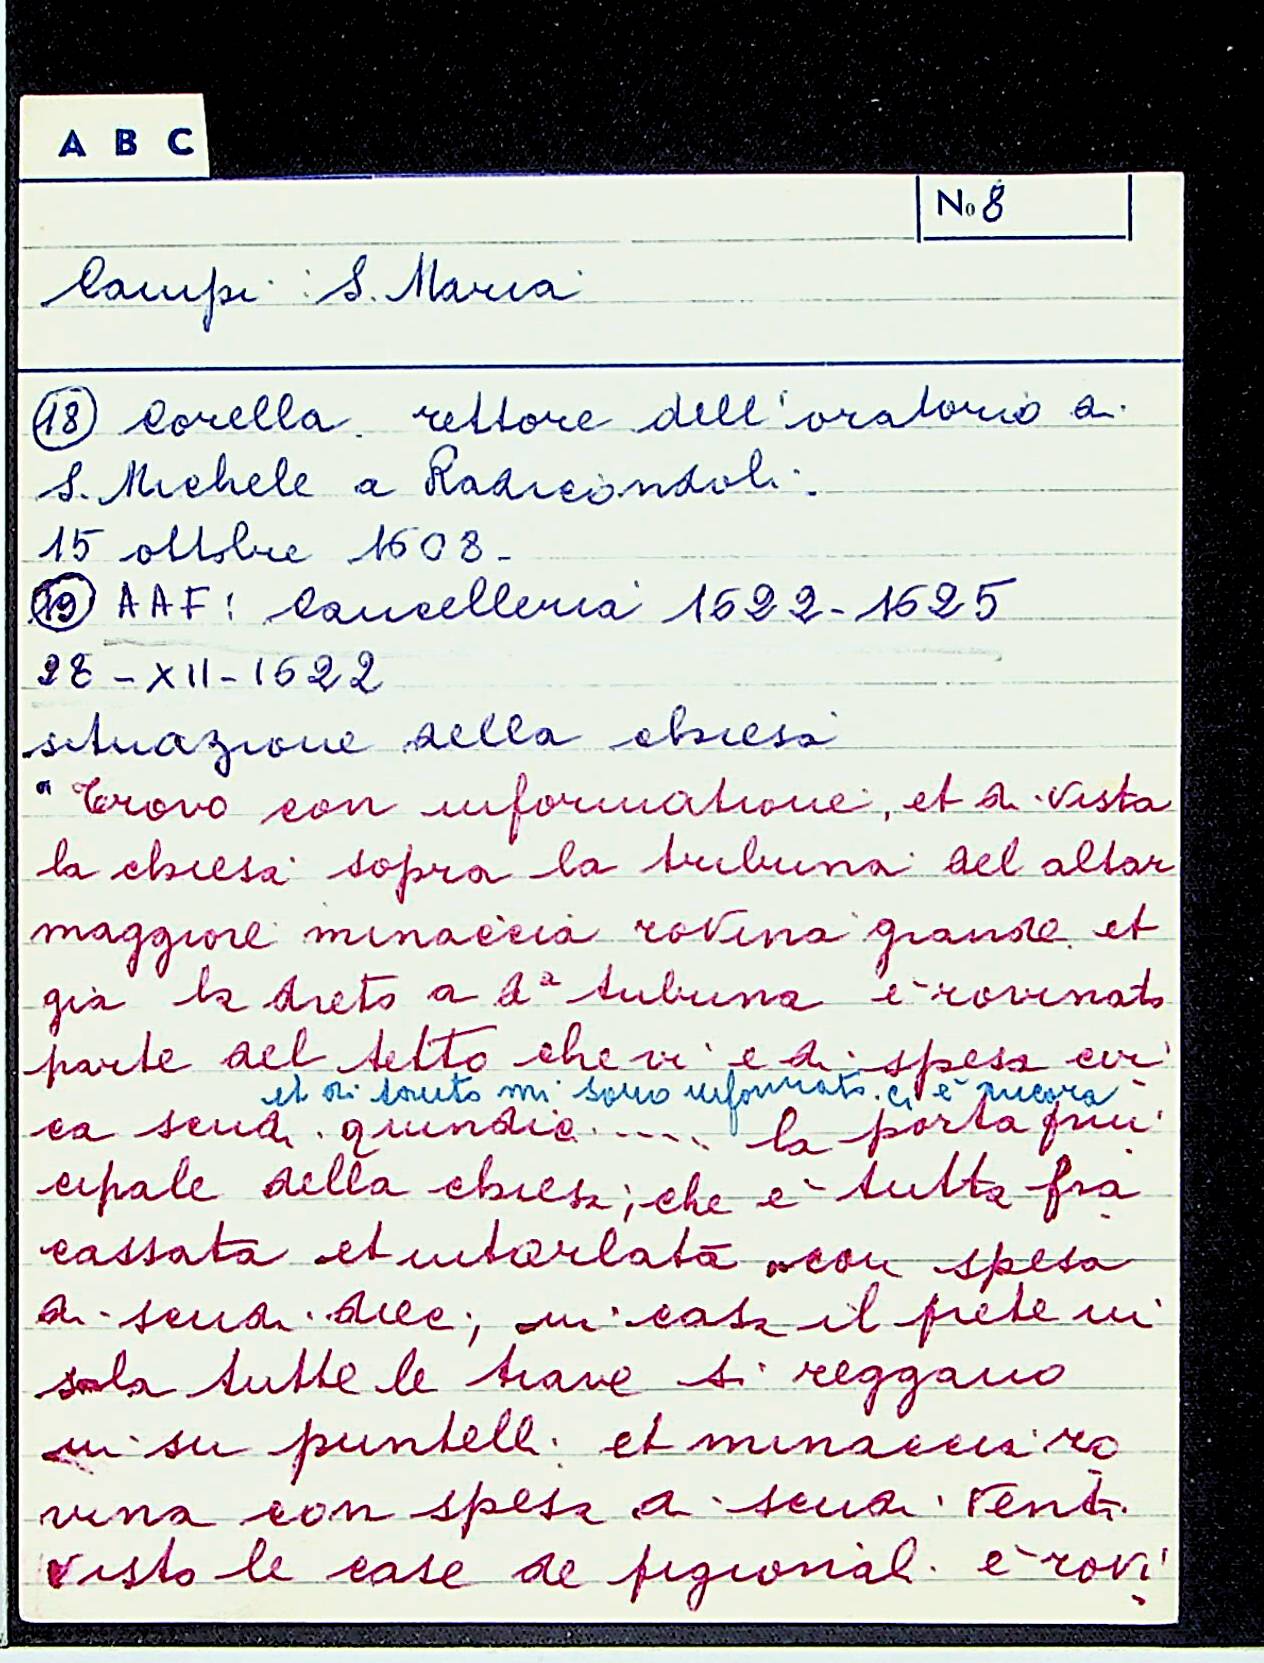 A B C
No 8
Campi: S. Maria
(18) Corella rettore dell'oratorio di
S. Michele a Radicondoli.
15 ottobre 1608-
(19) AAF: Cancelleria 1622-1625
28-XII-1622
situazione della chiesa
"Trovo con informatione, et di vista
la chiesa sopra la tribuna del altar
maggiore minaccia rovina grande et
già la dreto a d.ª tribuna è rovinato
parte del tetto che vi è di spesa cir
et di tanto mi sono informato. ci è ancora
ca scudi quindic..... la porta prin
cipale della chiesa; che è tutta fra
cassata et intarlata con spesa
di scudi diec; in casa il prete in
sala tutte le trave si reggano
in su puntelli et minaccia ro
vina con spesa di scudi venti.
visto le case de pigionali è rovi